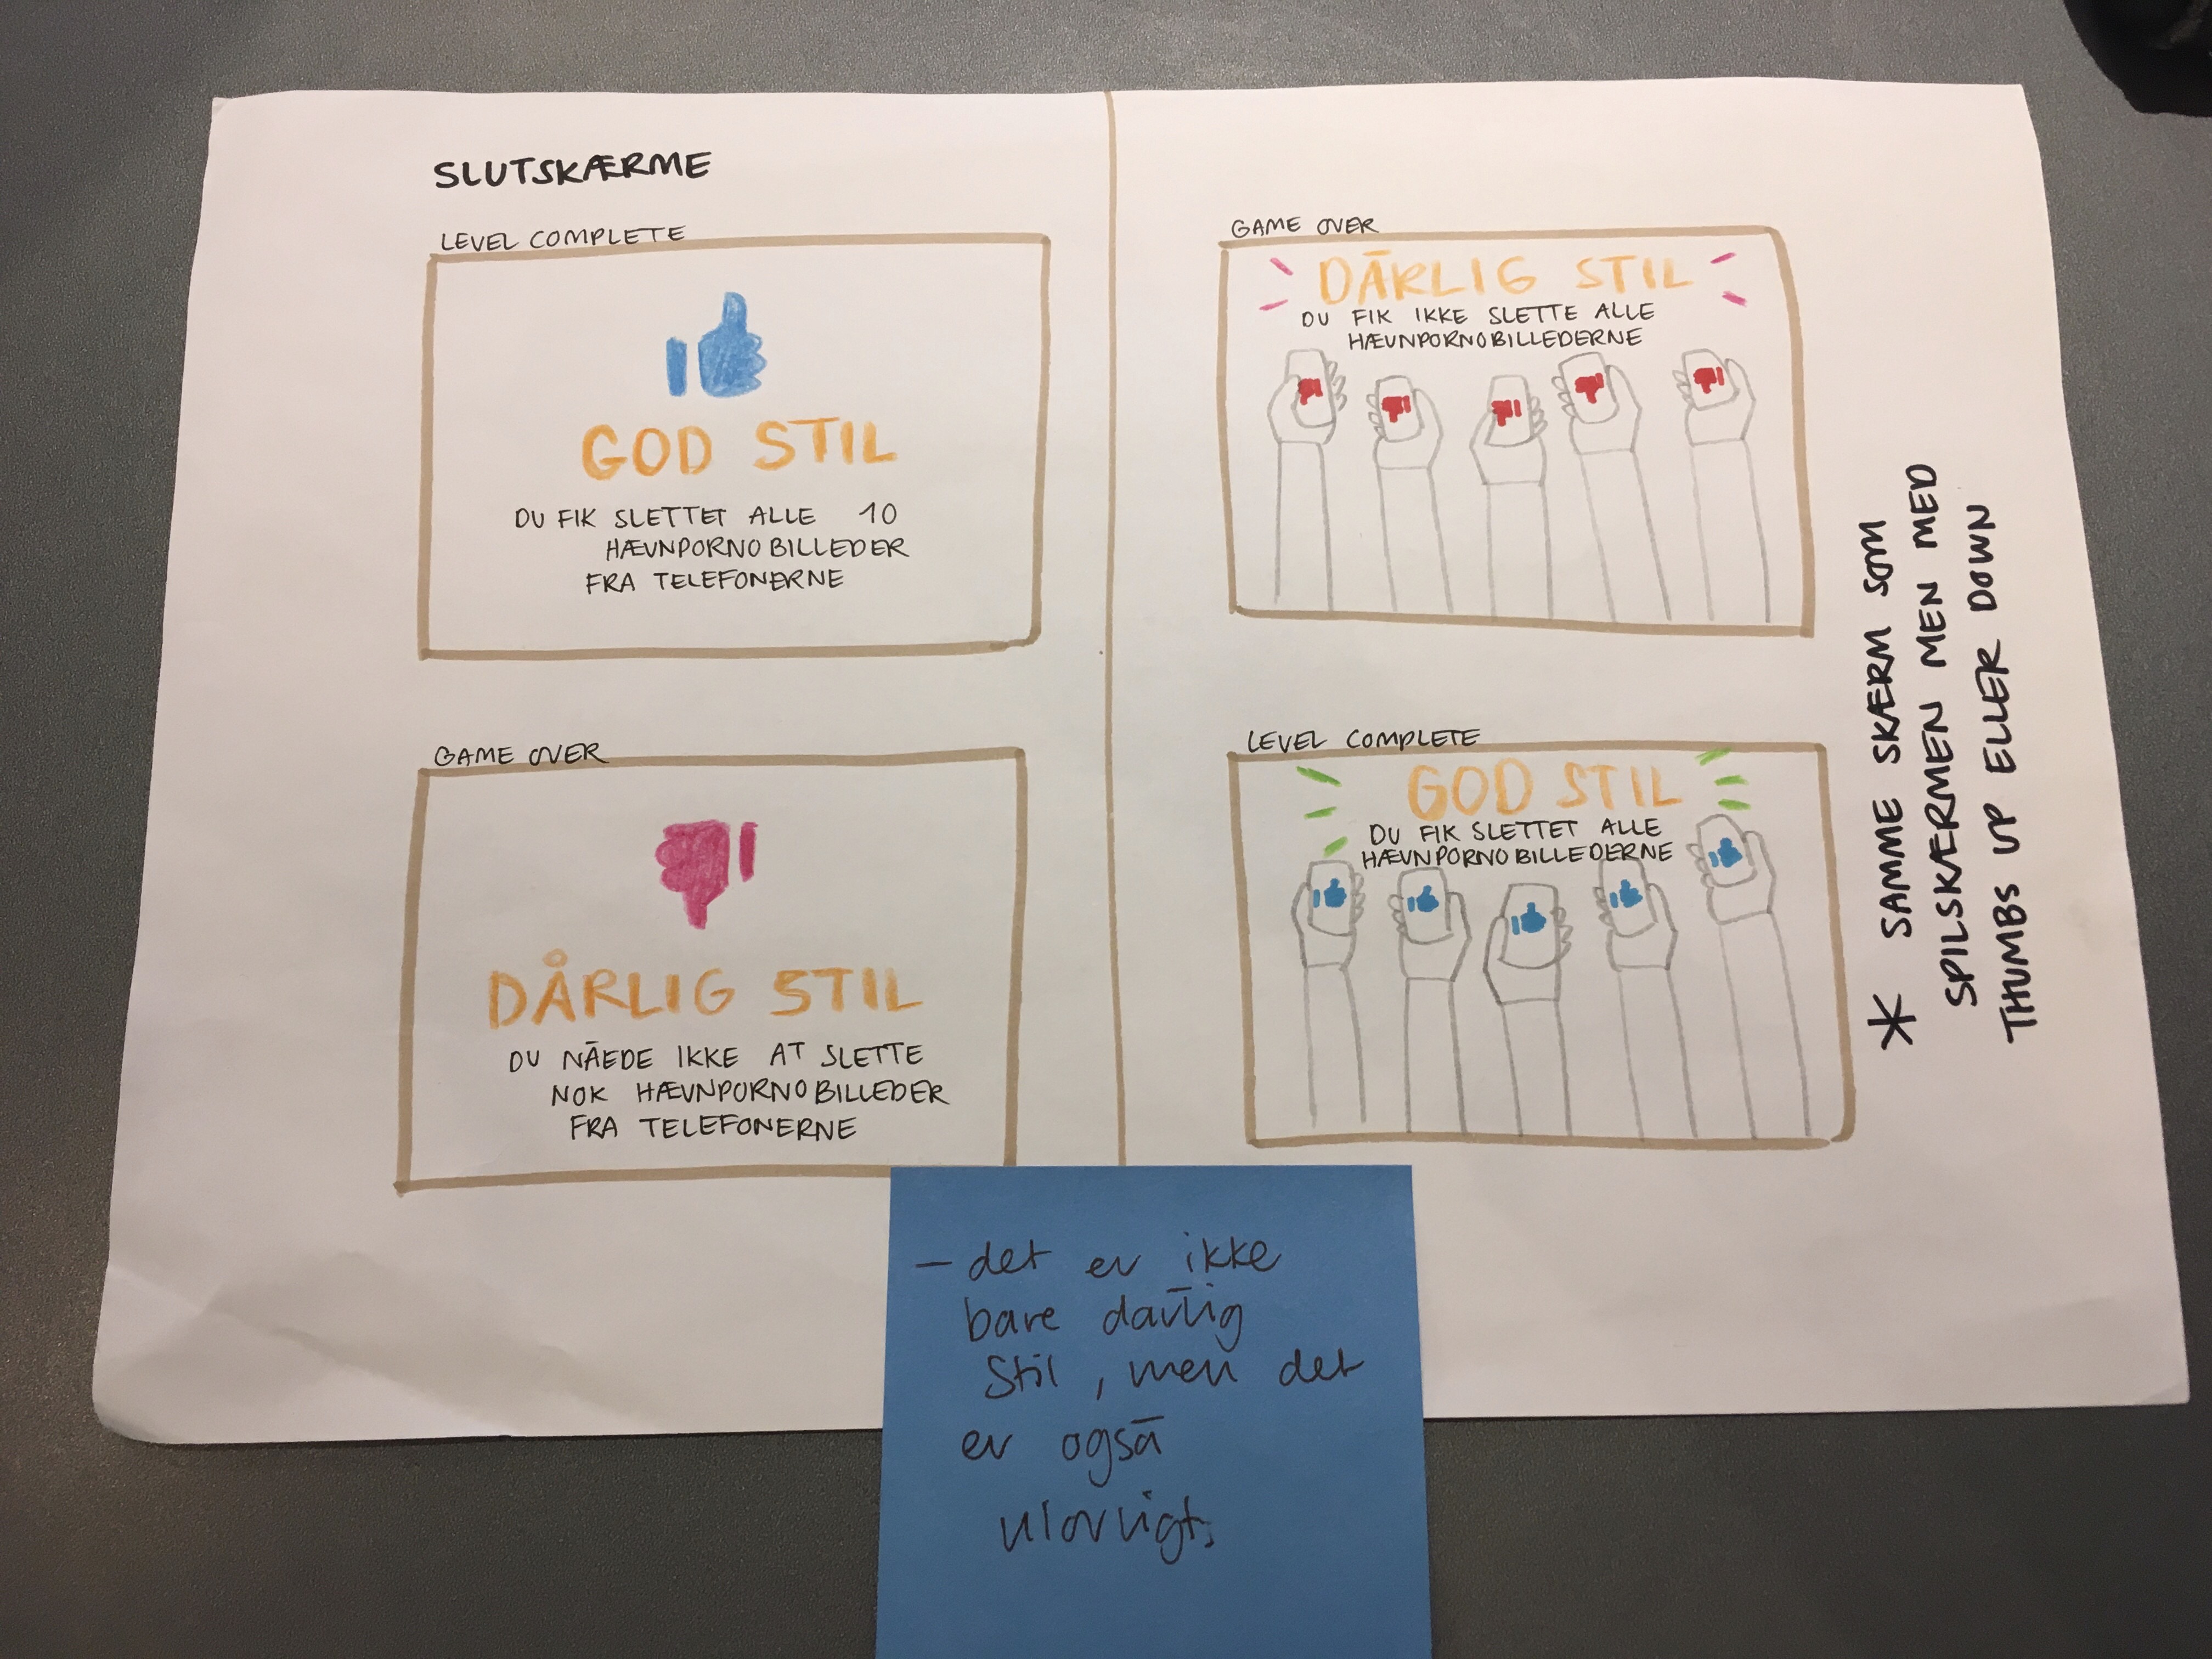 SLUTSKÆRME
LEVEL COMPLETE
GOD STIL
DU FIK SLETTET ALLE 10
HÆVNPORNOBILLEDER
FRA TELEFONERNE
GAME OVER
DÅRLIG STIL
DU NÅEDE IKKE AT SLETTE
NOK HÆVNPORNOBILLEDER
FRA TELEFONERNE
GAME OVER
DÅRLIG STIL
DU FIK IKKE SLETTE ALLE
HÆVNPORNOBILLEDERNE
LEVEL COMPLETE
GOD STIL
DU FIK SLETTET ALLE
HÆVNPORNOBILLEDERNE
* SAMME SKÆRM SOM
SPILSKÆRMEN MEN MED
THUMBS UP ELLER DOWN
– det er ikke
bare dårlig
Stil, men det
er også
ulovligt.